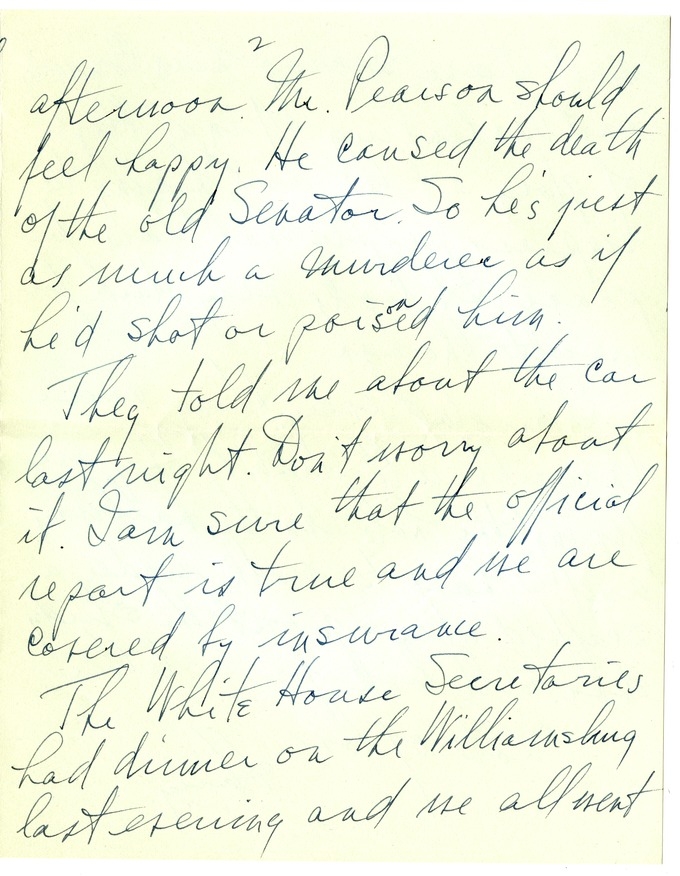 2
afternoon. Mr. Pearson should
feel happy. He caused the death
of the old Senator. So he's just
as much a murderer as if
he'd shot or poisoned him.
They told me about the car
last night. Don't worry about
it. I am sure that the official
report is true and we are
covered by insurance.
The White House Secretaries
had dinner on the Williamsburg
last evening and we all went